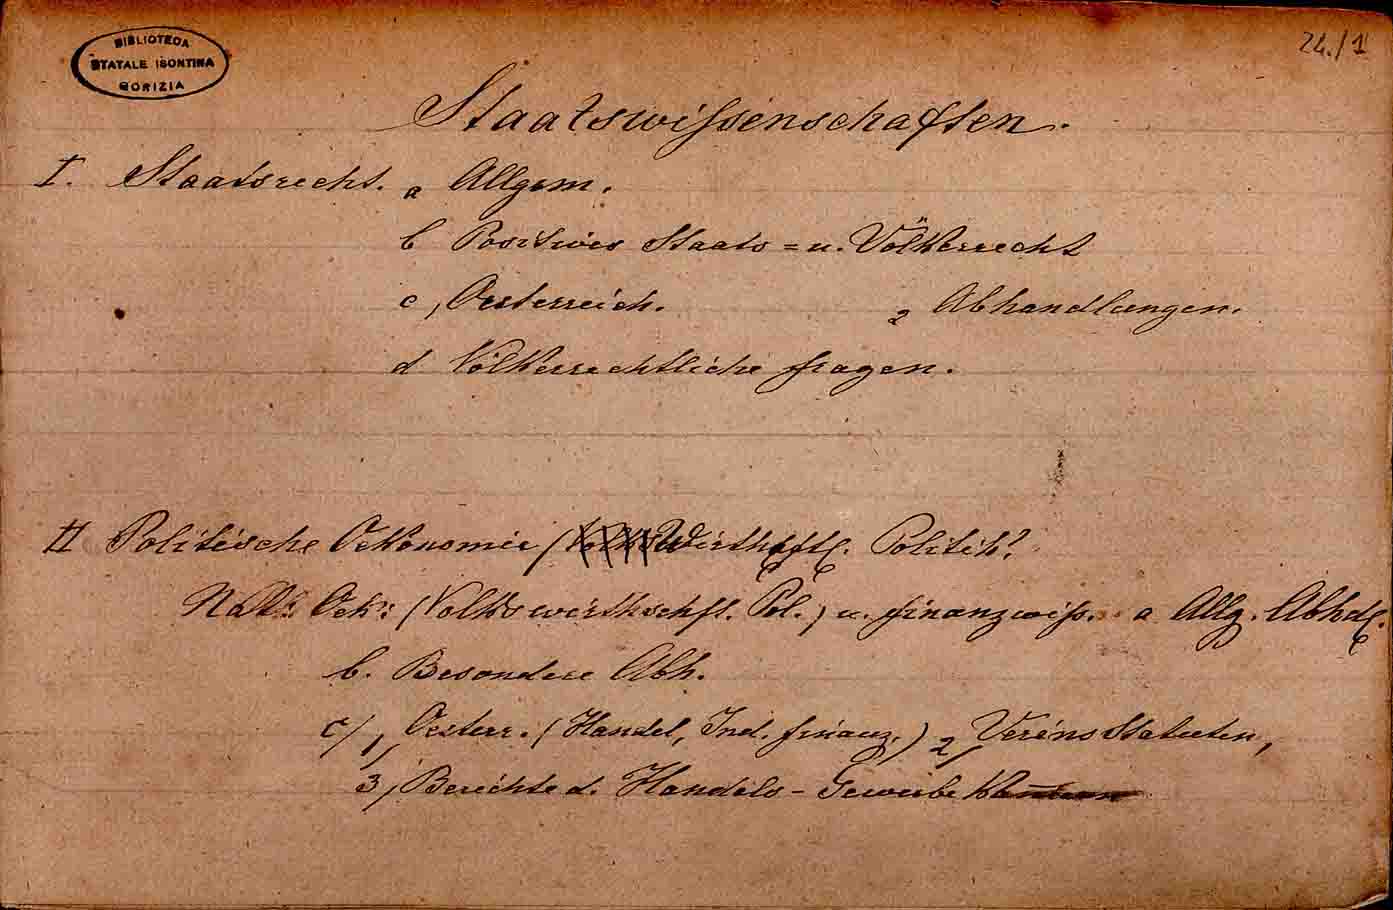 BIBLIOTECA
STATALE ISONTINA
GORIZIA
24./1
Staatswißenschaften.
I. Staatsrecht. a Allgem.
b Positives Staats = u. Völkerrecht
c, Oesterreich. 2 Abhandlungen.
d Völkerrechtliche fragen.
II Politische Oekonomie (Wirthschftl. Politik?
Natl: Oek: (Volkswirthschftl. Pol.) u. finanzwiß. a Allg. Abhdl.
b. Besondere Abh.
c/ 1, Oesterr. (Handel, Ind. finanz.) 2, Vereins Statuten,
3, Berichte d. Handels - Gewerbe Kammern